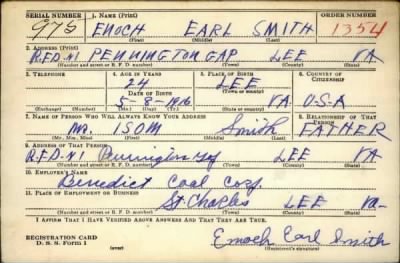 SERIAL NUMBER 1. NAME (Print) ORDER NUMBER
975 ENOCH EARL SMITH 1354
(First) (Middle) (Last)
2. ADDRESS (Print)
R.F.D. #1 PENNINGTON GAP LEE VA
(Number and street or R. F. D. number) (Town) (County) (State)
3. TELEPHONE 4. AGE IN YEARS 5. PLACE OF BIRTH 6. COUNTRY OF CITIZENSHIP
24 LEE
DATE OF BIRTH (Town or county)
5-8-1916 VA. U-S-A
(Exchange) (Number) (Mo.) (Day) (Yr.) (State or country)
7. NAME OF PERSON WHO WILL ALWAYS KNOW YOUR ADDRESS 8. RELATIONSHIP OF THAT PERSON
Mr. ISOM Smith FATHER
(Mr., Mrs., Miss) (First) (Middle) (Last)
9. ADDRESS OF THAT PERSON
R.F.D. #1 Pennington Gap LEE VA
(Number and street or R. F. D. number) (Town) (County) (State)
10. EMPLOYER'S NAME
Benedict Coal Corp.
11. PLACE OF EMPLOYMENT OR BUSINESS
St. Charles LEE Va-
(Number and street or R. F. D. number) (Town) (County) (State)
I AFFIRM THAT I HAVE VERIFIED ABOVE ANSWERS AND THAT THEY ARE TRUE.
REGISTRATION CARD
D. S. S. Form 1 (over) Enoch Earl Smith
(Registrant's signature)